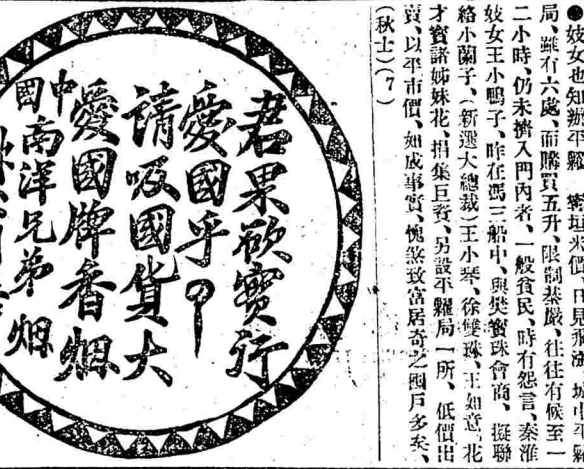 ●妓女也知辦平糶 寧垣米價、日見飛漲、城中平糶
局、雖有六處、而購買五升、限制綦嚴、往往有候至一
二小時、仍未擠入門內者、一般貧民、時有怨言、秦淮
妓女王小鴨子、昨在馮三船中、與樊寶珠會商、擬聯
絡小蘭子、(新選大總裁)王小琴、徐雙珠、王如意、花
才寶諸姊妹花、捐集巨資、另設平糶局一所、低價出
賣、以平市價、如成事實、愧煞致富居奇之囤戶多矣、
(秋士)(7)
君果欲實行
愛國乎
請吸國貨大
愛國牌香烟
中國南洋兄弟烟